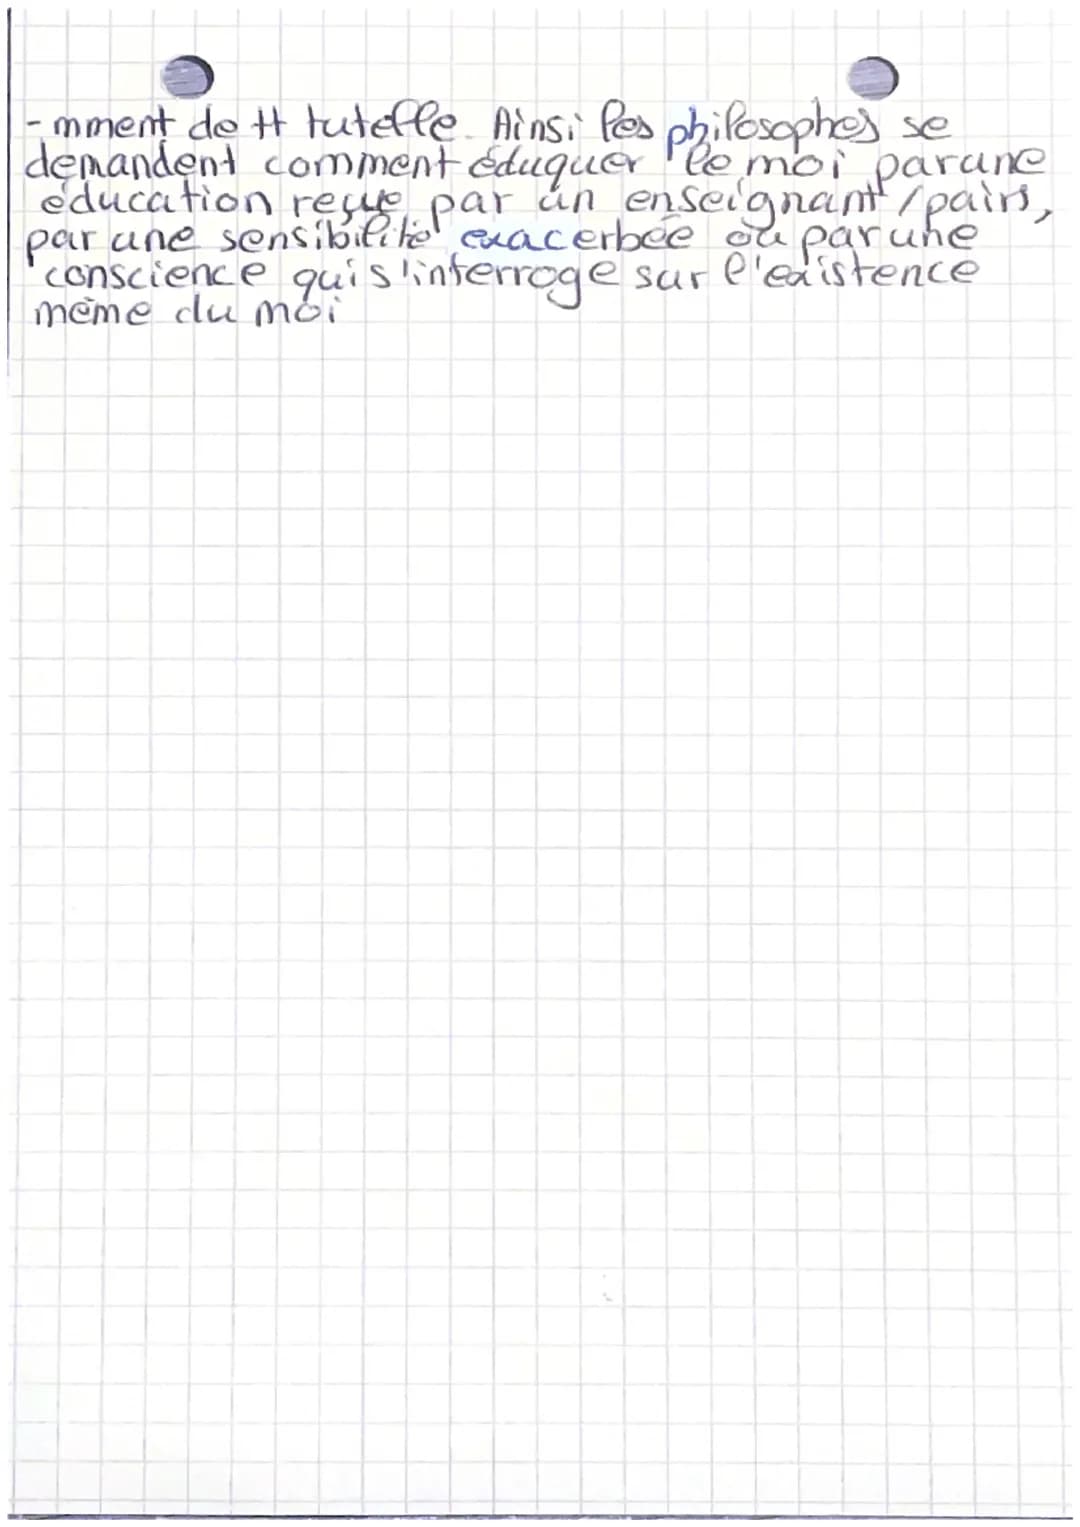 -mment de tt tutelle. Ainsi les philosophes se
demandent comment éduquer le moi par une
éducation reçue par un enseignant/pairs,
par une sensibilité exacerbée ou par une
conscience qui s'interroge sur l'existence
même du moi